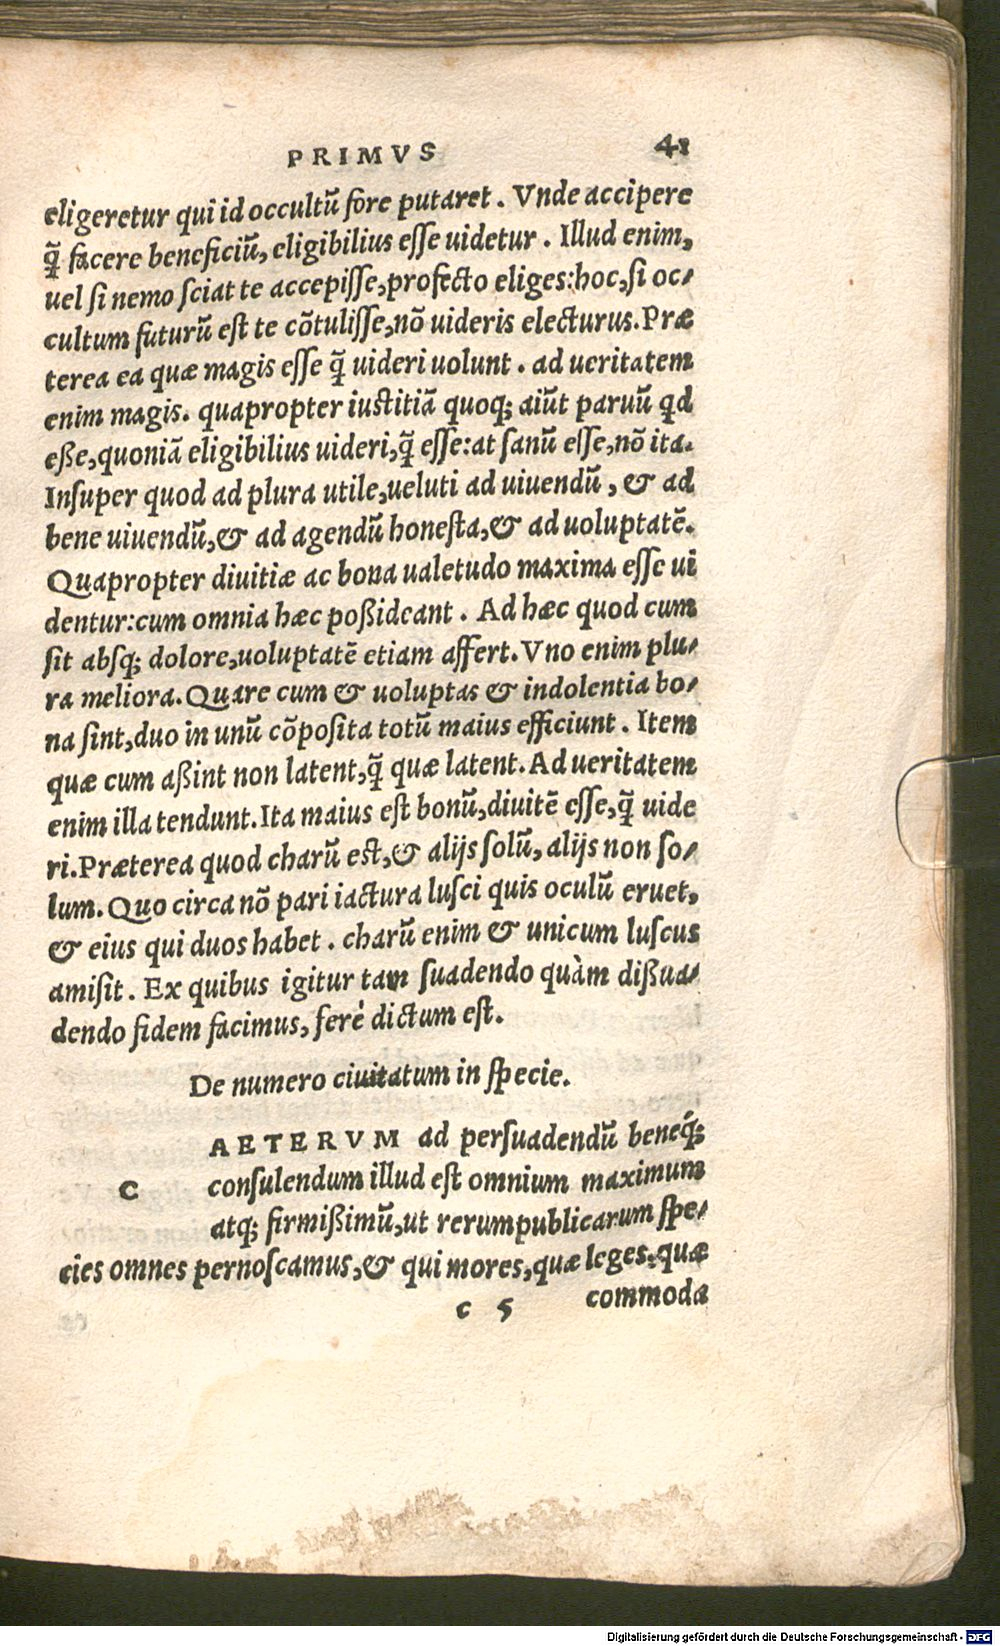 PRIMVS 41
eligeretur qui id occultũ fore putaret. Vnde accipere
q̃ facere beneficiũ, eligibilius esse uidetur. Illud enim,
uel si nemo sciat te accepisse, profecto eliges: hoc, si oc-
cultum futurũ est te cõtulisse, nõ uideris electurus. Præ
terea ea quæ magis esse q̃ uideri uolunt. ad ueritatem
enim magis. quapropter iustitiã quoq; aiũt paruũ qd
eße, quoniã eligibilius uideri, q̃ esse: at sanũ esse, nõ ita.
Insuper quod ad plura utile, ueluti ad uiuendũ, & ad
bene uiuendũ, & ad agendũ honesta, & ad uoluptatẽ.
Quapropter diuitiæ ac bona ualetudo maxima esse ui
dentur: cum omnia hæc poßideant. Ad hæc quod cum
sit absq; dolore, uoluptatẽ etiam affert. Vno enim plu-
ra meliora. Quare cum & uoluptas & indolentia bo-
na sint, duo in unũ cõposita totũ maius efficiunt. Item
quæ cum aßint non latent, q̃ quæ latent. Ad ueritatem
enim illa tendunt. Ita maius est bonũ, diuitẽ esse, q̃ uide
ri. Præterea quod charũ est, & alijs solũ, alijs non so-
lum. Quo circa nõ pari iactura lusci quis oculũ eruet,
& eius qui duos habet. charũ enim & unicum luscus
amisit. Ex quibus igitur tam suadendo quàm dißua-
dendo fidem facimus, ferè dictum est.
De numero ciuitatum in specie.
C AETERVM ad persuadendũ beneq́;
consulendum illud est omnium maximum
atq; firmißimũ, ut rerumpublicarum spe-
cies omnes pernoscamus, & qui mores, quæ leges, quæ
c 5 commoda
Digitalisierung gefördert durch die Deutsche Forschungsgemeinschaft - DFG